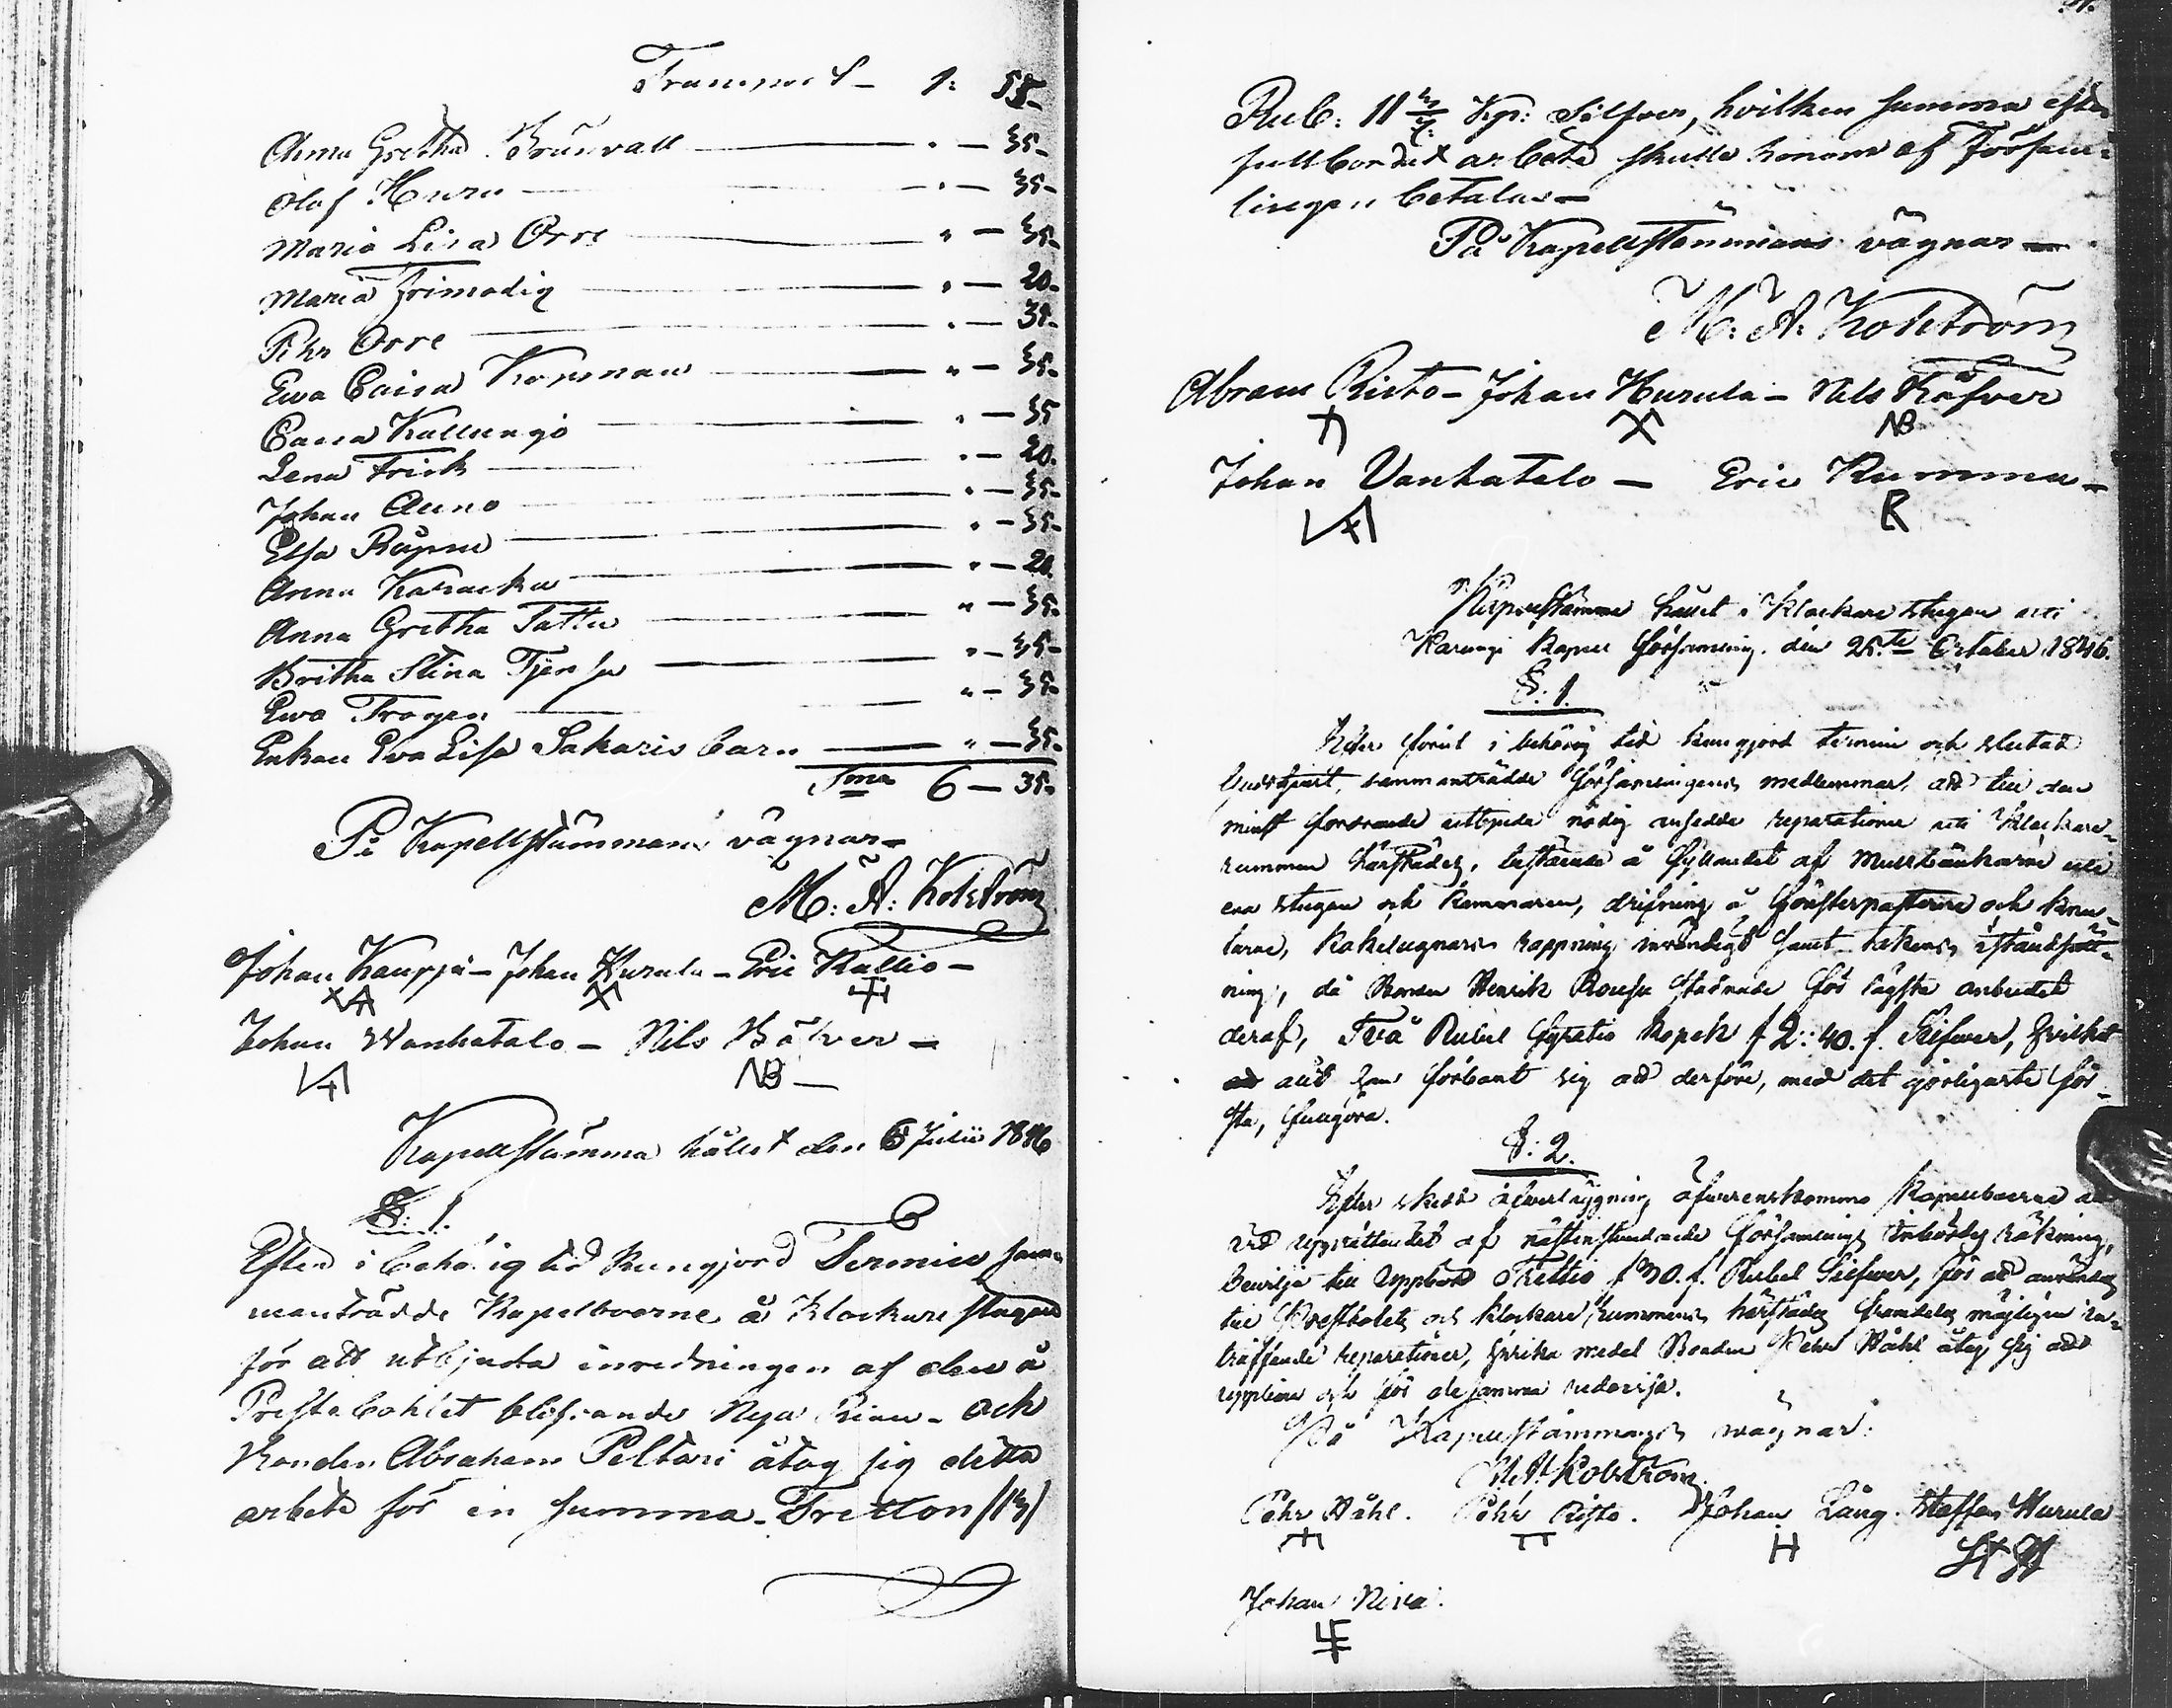 Transport — 1: 55.
Anna Gretha Brännvall — " — 35.
Olof Huru — " — 35.
Maria Lisa Orre — " — 35.
Maria Frimodig — " — 20.
Pehr Orre — " — 35.
Ewa Caisa Korpman — " — 35.
Caisa Kallungi — " — 35
Lena Frisk — " — 20.
Johan Auno — " — 35.
Elsa — " — 35.
Anna — " — 20.
Anna Gretha Tattu — " — 35.
Britha Stina — " — 35.
Ewa Trogen — " — 35.
Enkan Eva Lisa Sakaris barn — " — 35.
Sma 6 — 35.
På Kapellstämmans vägnar —
M: A: Kolström
Johan Kauppi — Johan Hurula — Eric Kallio —
Johan Wanhatalo — Nils Båfver —
NB —
Kapellstämma hållet den 5 Julii 1846
§: 1.
Efter i behörig tid kungjord Termin sam-
manträdde Kapellboerne å Klockare stugan
för att utbjuda inredningen af den å
Prestebohlet blifvande Nya — och
Bonden Abraham Peltari åtog sig detta
arbete för en summa Tretton /13/
Rub: 11 3/7 Kop: Silfver, hvilken summa efter
fullbordadt arbete skulle honom af Försam-
lingen betalas —
På Kapellstämmans vägnar —
M: A: Kolström
Abram Risto — Johan Hurula — Nils Båfver
NB
Johan Vanhatalo — Eric Rumma —
R
Kapellstämma hållet i Klockare stugan uti
Karungi Kapell Församling den 25te October 1846.
§: 1.
Efter förut i behörig tid kungjord termin och slutad
Gudstjenst, sammanträdde Församlingens medlemmar, att till den
minst fordrande utbjuda nödig ansedde reparationer uti Klockare-
rummen härstädes, bestående å fyllandet af Murbänkarne uti
ena stugan och kammaren, drifning å fönsterposterne och knu-
tarne, Kakelugnarnes rappning invändigt samt takens iståndsätt-
ning, då Bonden Henrik Rousu stadnade för lägsta anbudet
deraf, Två Rubel Fyratio Kopek /2: 40./ Silfwer, hvilket
allt han förbant sig att derföre, med det görligaste för-
sta, fullgöra.
§: 2.
Efter skedd öfverläggning öfverenskommo Kapellboerne att
vid upprättandet af nästinstundande Församlings inbördes räkning,
bevilja till uppbörd Trettio /30./ Rubel Silfwer, för att användas
till Prestbolets och Klockare rummens härstädes framdeles möjligen in-
träffande reparationer, hvilka medel Bonden Pehr Ståhl åtog sig att
uppbära och för desamma redovisa.
På Kapellstämmans wägnar:
M. A. Kolström
Pehr Ståhl. Pehr Risto. Johan Lång. Staffan Hurula
H St H
Johan Niva.